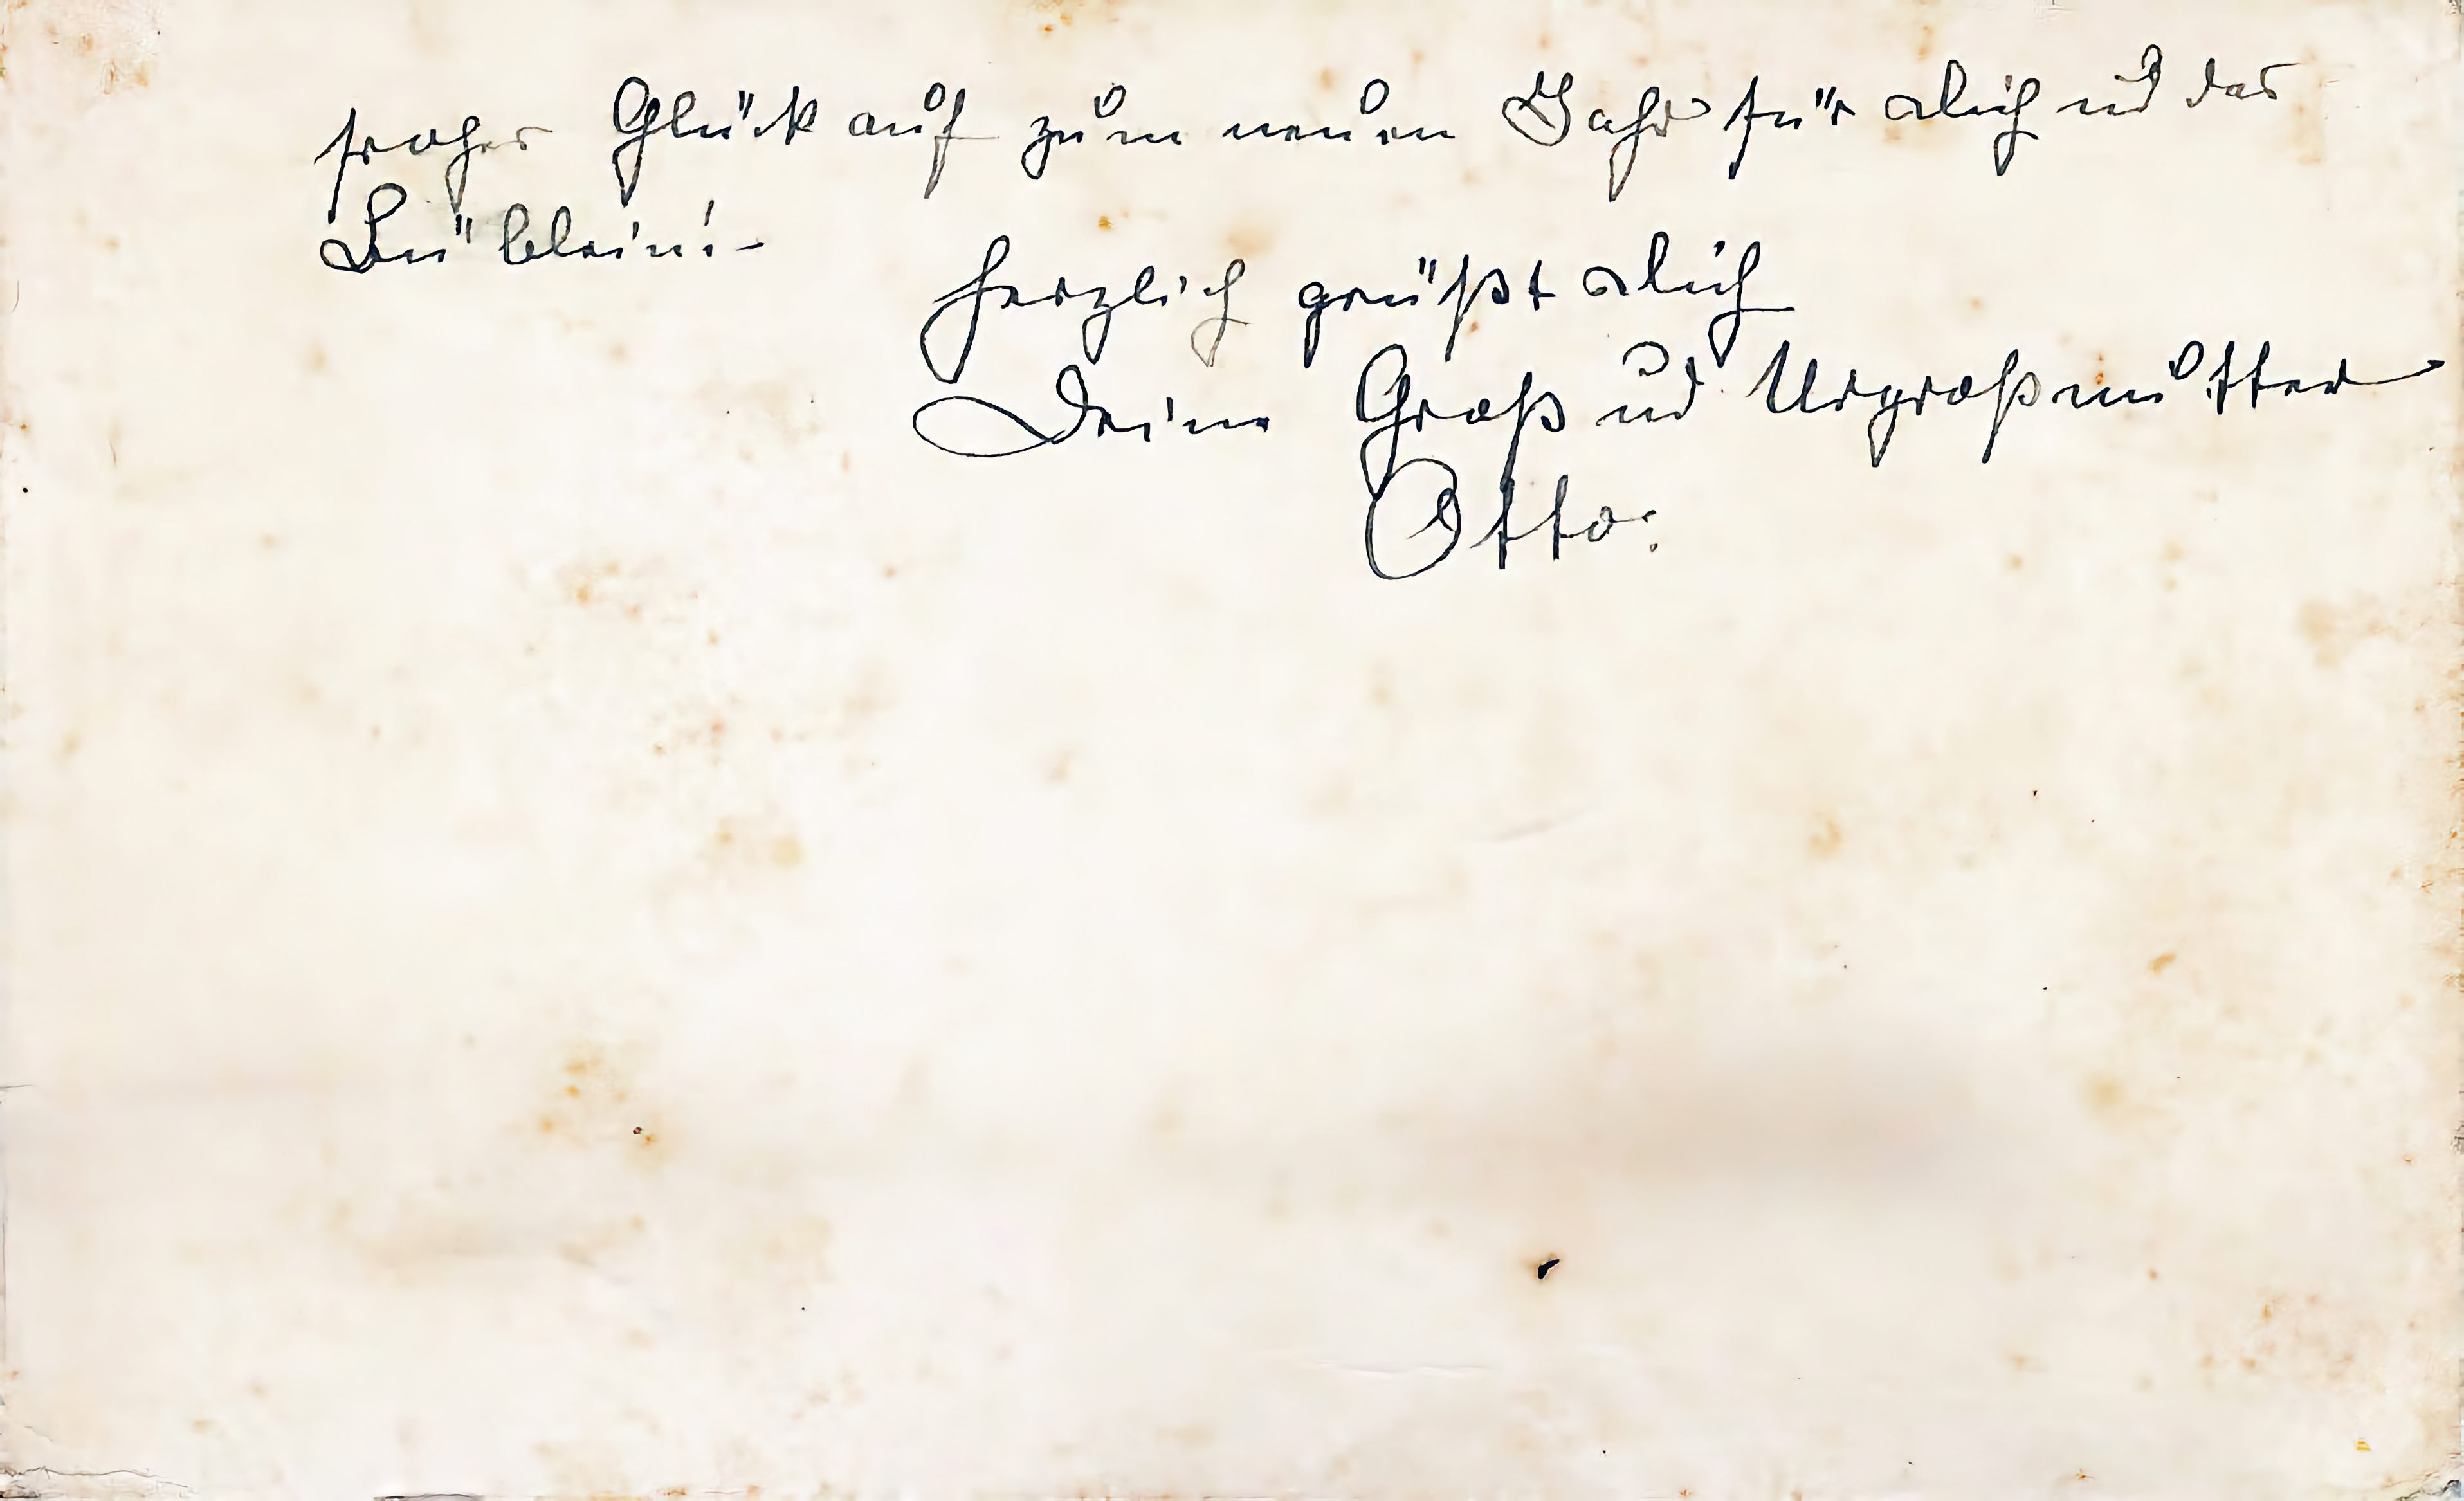 frohes Glück auf zum neuen Jahr für Dich und das
Büblein! -
Herzlich grüßt Dich
Deine Groß und Urgroßmutter
Otto.